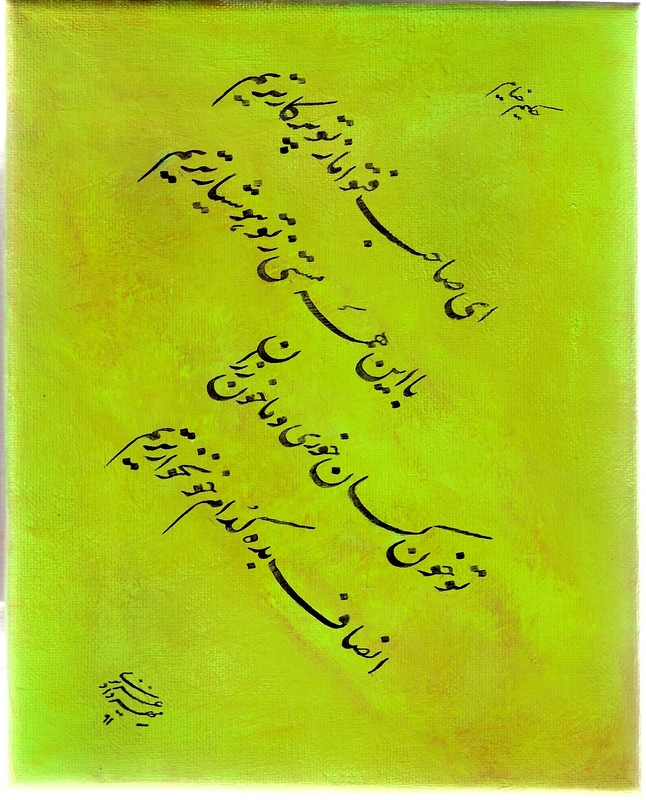 حکیم خیام
ای صاحب فتوا ما ز تو پرکارتریم
با این همه مستی ز تو هوشیارتریم
تو خون کسان خوری و ما خون رزان
انصاف بده کدام خونخوارتریم
۹۱